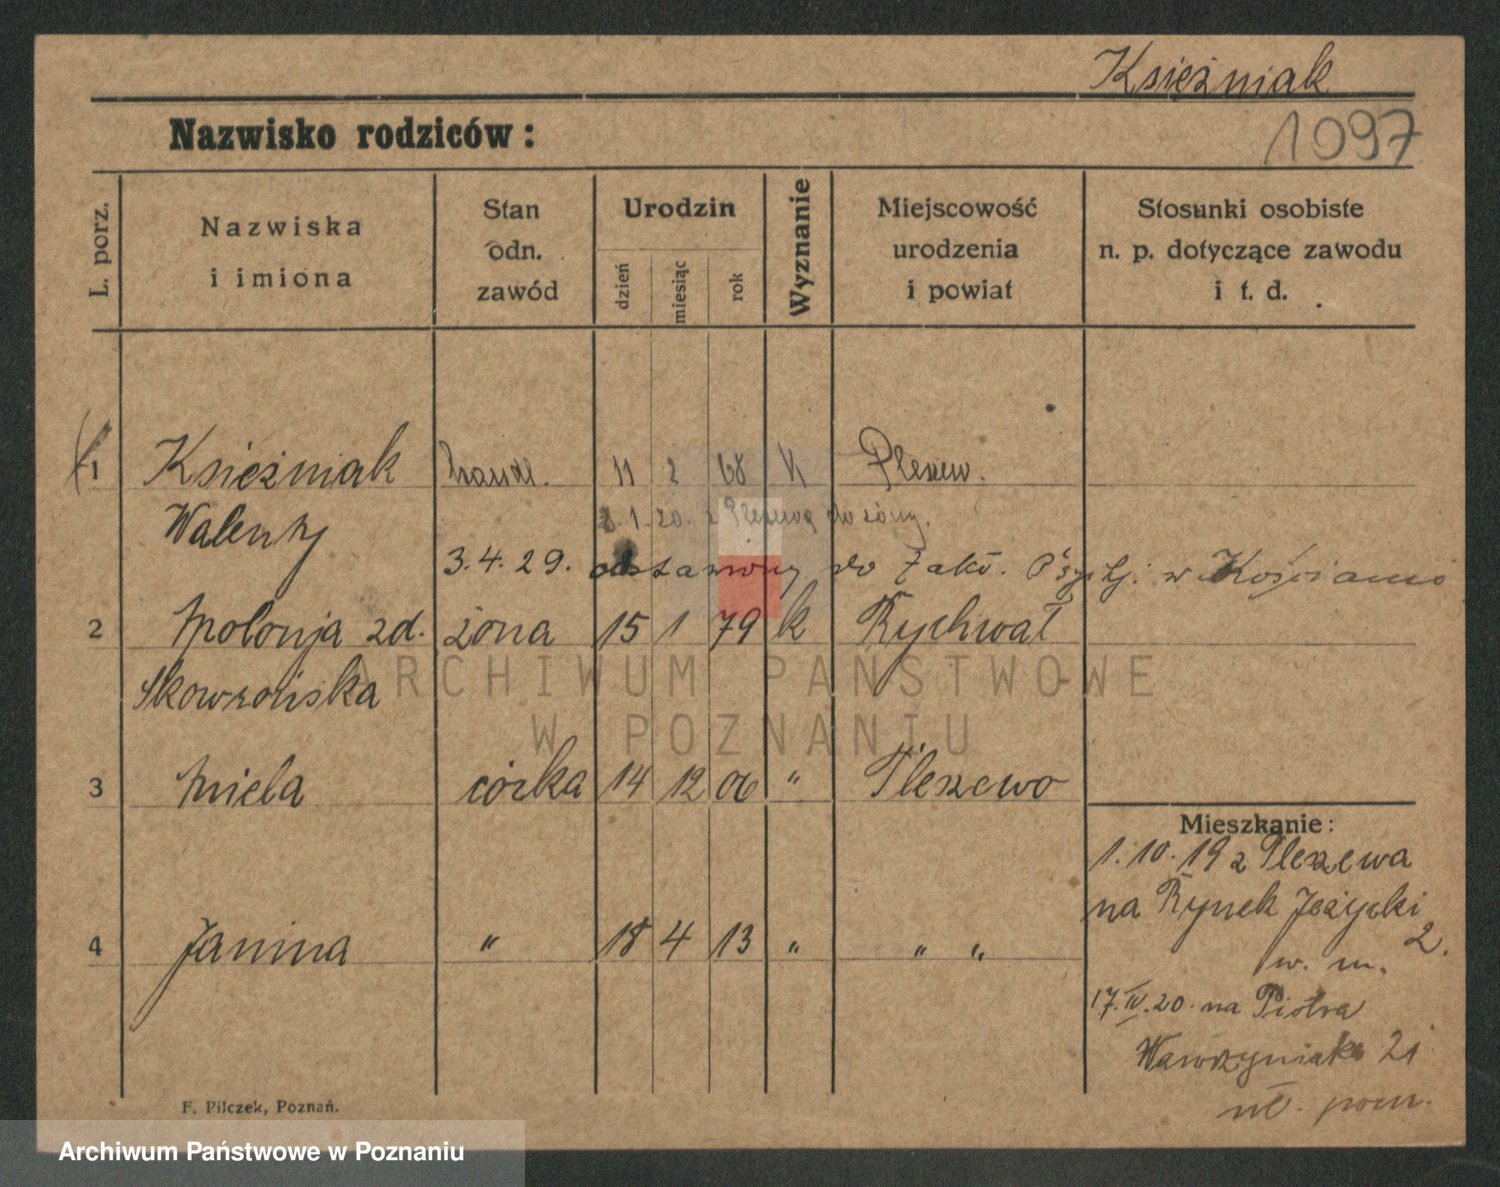 Księżniak
1097
Nazwisko rodziców:
L. porz.
Nazwiska
i imiona
Stan
odn.
zawód
Urodzin
dzień
miesiąc
rok
Wyznanie
Miejscowość
urodzenia
i powiat
Stosunki osobiste
n. p. dotyczące zawodu
i t. d.
1 Księżniak handl. 11 2 68 k Pleszew.
Walenty
8.1.20. z Pleszewa do żony.
3.4.29. odstawiony do Zakł. Psych. w Kościanie
2 Melonja zd. żona 15 1 79 k Rychwał
Skowrońska
3 Miela córka 14 12 06 " Pleszewo
4 Janina " 18 4 13 " " "
Mieszkanie:
1.10.19 z Pleszewa
na Rynek Jeżycki
2.
w. m.
17.IV.20. na Piotra
Wawrzyniaka 21
F. Pilczek, Poznań.
ARCHIWUM PAŃSTWOWE
W POZNANIU
Archiwum Państwowe w Poznaniu